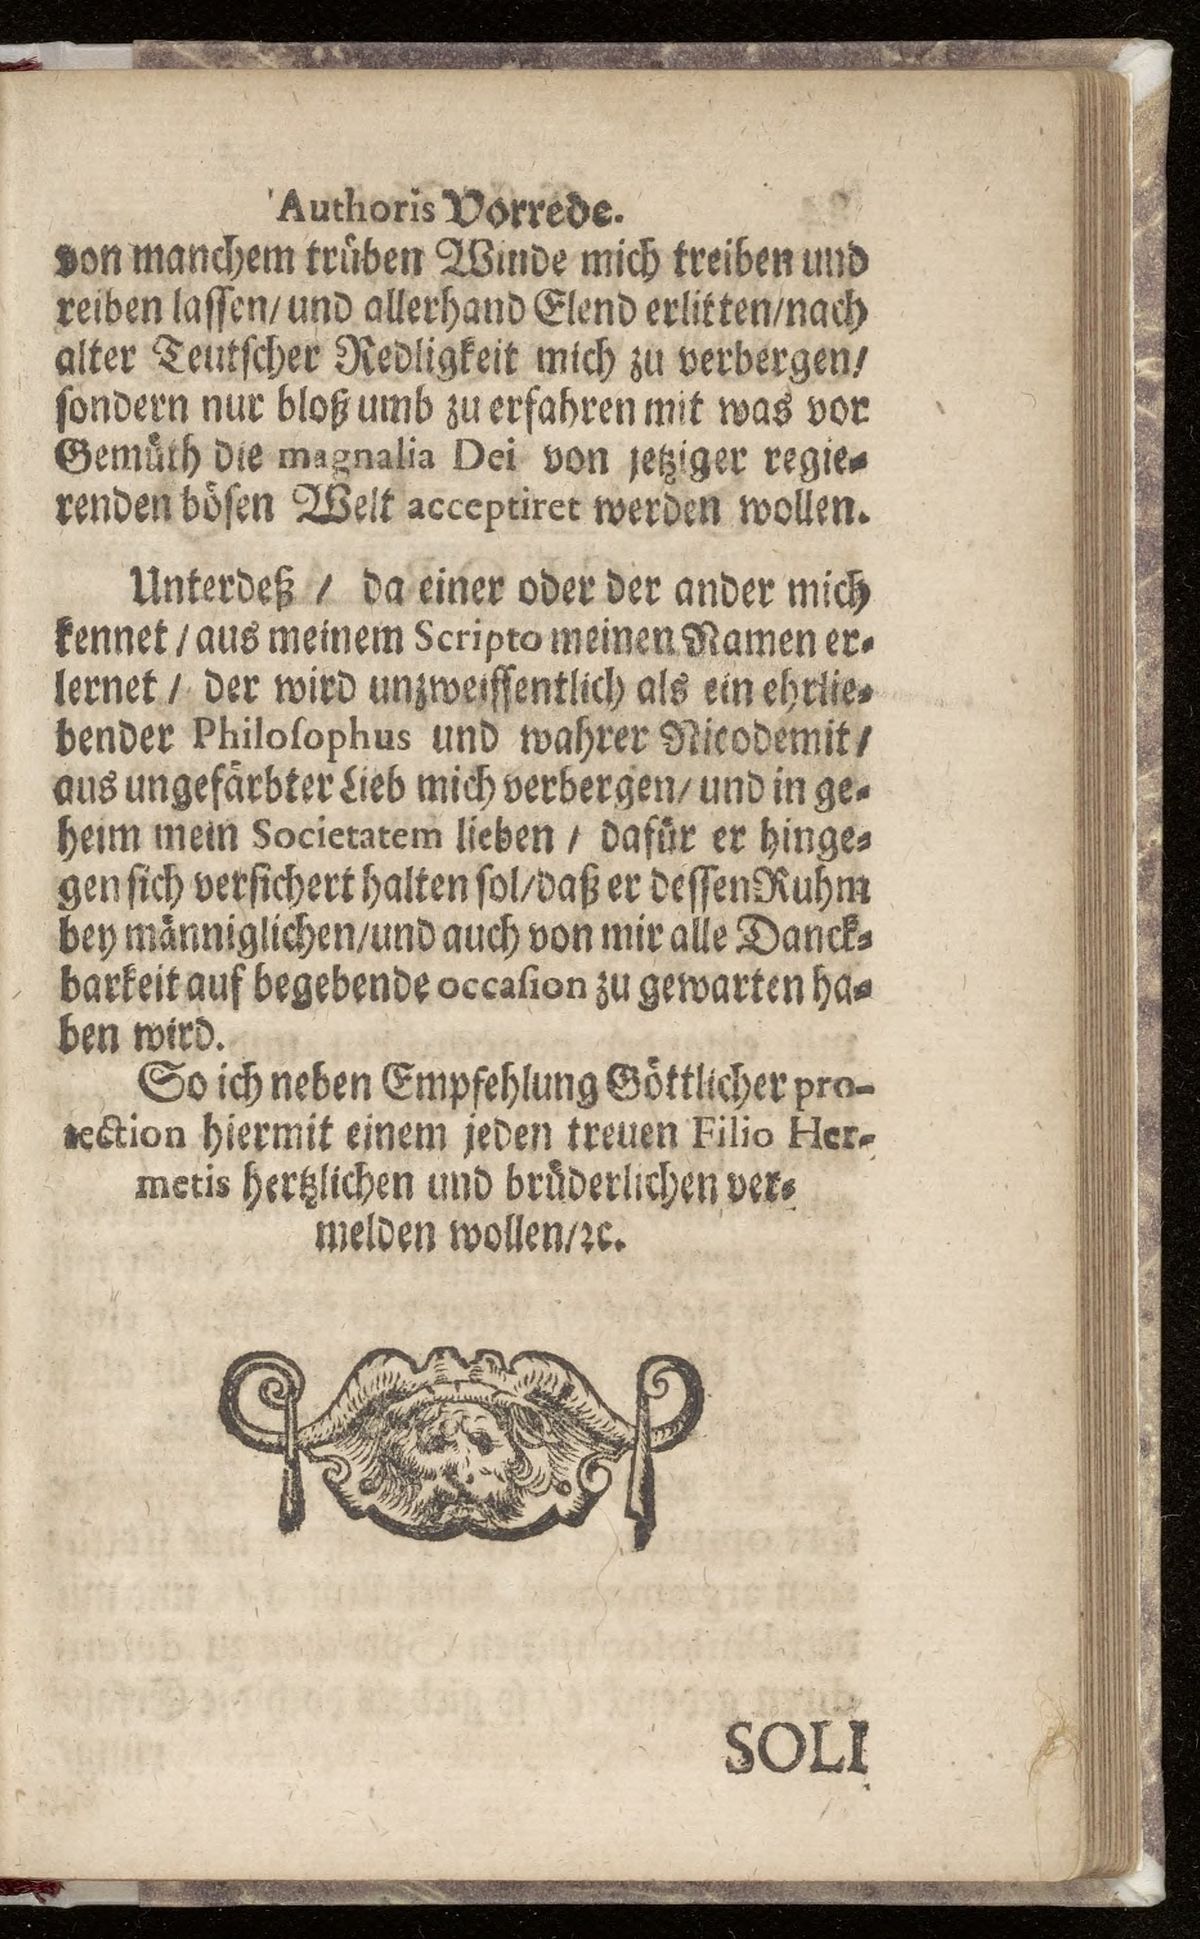 Authoris Vorrede.
von manchem trüben Winde mich treiben und
reiben lassen/ und allerhand Elend erlitten/nach
alter Teutscher Redligkeit mich zu verbergen/
sondern nur bloß umb zu erfahren mit was vor
Gemüth die magnalia Dei von jetziger regie-
renden bösen Welt acceptiret werden wollen.
Unterdeß / da einer oder der ander mich
kennet / aus meinem Scripto meinen Namen er-
lernet / der wird unzweiffentlich als ein ehrlie-
bender Philosophus und wahrer Nicodemit/
aus ungefärbter Lieb mich verbergen/ und in ge-
heim mein Societatem lieben / dafür er hinge-
gen sich versichert halten sol/daß er dessen Ruhm
bey männiglichen/und auch von mir alle Danck-
barkeit auf begebende occasion zu gewarten ha-
ben wird.
So ich neben Empfehlung Göttlicher pro-
tection hiermit einem jeden treuen Filio Her-
metis hertzlichen und brüderlichen ver-
melden wollen/ꝛc.
SOLI